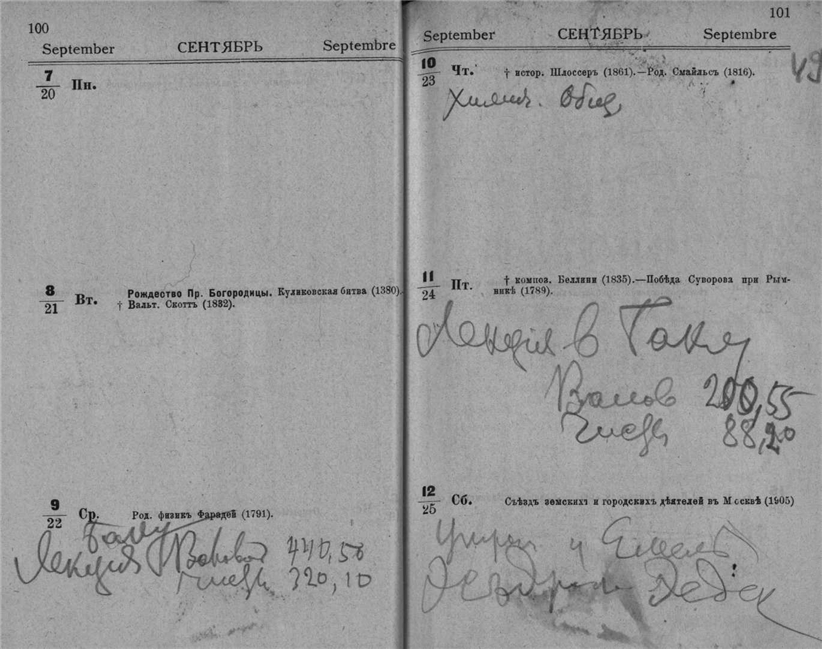 100
September СЕНТЯБРЬ Septembre
7/20 Пн.
8/21 Вт. Рождество Пр. Богородицы. Куликовская битва (1380).
† Вальт. Скоттъ (1832).
9/22 Ср. Род. физикъ Фарадей (1791).
Баку
Лекция Валовой 440,50
Чистый 320,10
101
September СЕНТЯБРЬ Septembre
49
10/23 Чт. † истор. Шлоссеръ (1861).—Род. Смайльсъ (1816).
Химич. Общ
11/24 Пт. † композ. Беллини (1835).—Побѣда Суворова при Рым-
никѣ (1789).
Лекция в Баку
Валов 200,55
Чист 88,20
12/25 Сб. Съѣздъ земскихъ и городскихъ дѣятелей въ Москвѣ (1905)
Утром у